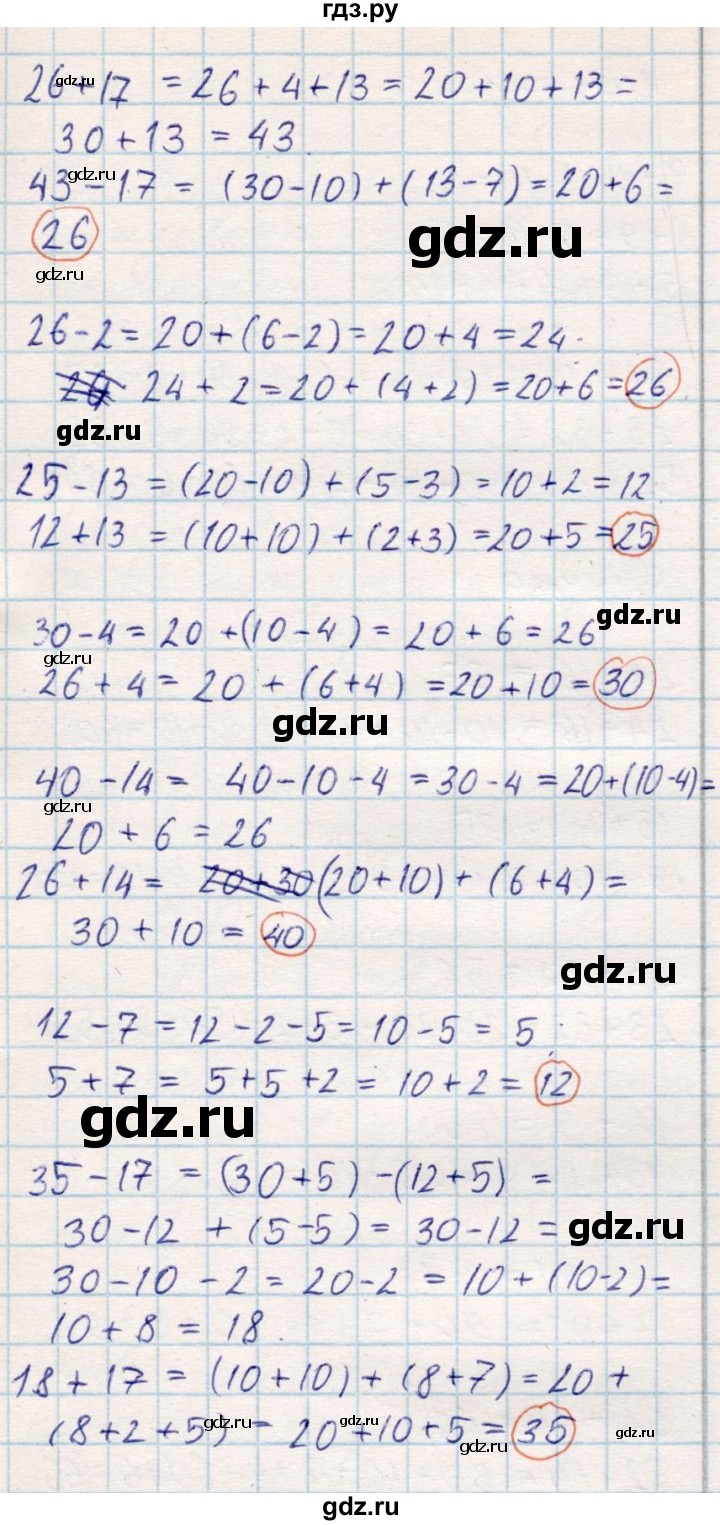 гдз.ру
26+17 = 26 + 4 + 13 = 20 + 10 + 13 =
gdz.ru
30 + 13 = 43.
gdz.ru
43 - 17 = (30-10) + (13-7) = 20+6 =
26
gdz.ru
gdz.ru
26-2 = 20 + (6-2) = 20 + 4 = 24.
24 + 2 = 20 + (4+2) = 20+6 = 26.
gdz.ru
25 - 13 = (20-10) + (5-3) = 10+2 = 12.
12 + 13 = (10+10) + (2+3) = 20+5 = 25
gdz.ru
30-4 = 20 + (10-4) = 20 + 6 = 26
gdz.ru
26 + 4 = 20 + (6+4) = 20+10 = 30
gdz.ru
40 - 14 = 40-10-4 = 30-4 = 20+(10-4)=
gdz.ru
20 + 6 = 26
26 + 14 = 20+30 (20+10) + (6+4) =
30 + 10 = 40
gdz.ru
12 - 7 = 12 - 2 - 5 = 10 - 5 = 5.
5 + 7 = 5+5 + 2 = 10 + 2 = 12
gdz.ru
35-17 = (30+5) - (12+5) =
30-12 + (5-5) = 30-12 =
gdz.ru
30-10 - 2 = 20-2 = 10 + (10-2) =
10 + 8 = 18.
18 + 17 = (10+10) + (8+7) = 20 +
(8+2+5) = 20 + 10 + 5 = 35
gdz.ru
gdz.ru
gdz.ru
gdz.ru
gdz.ru